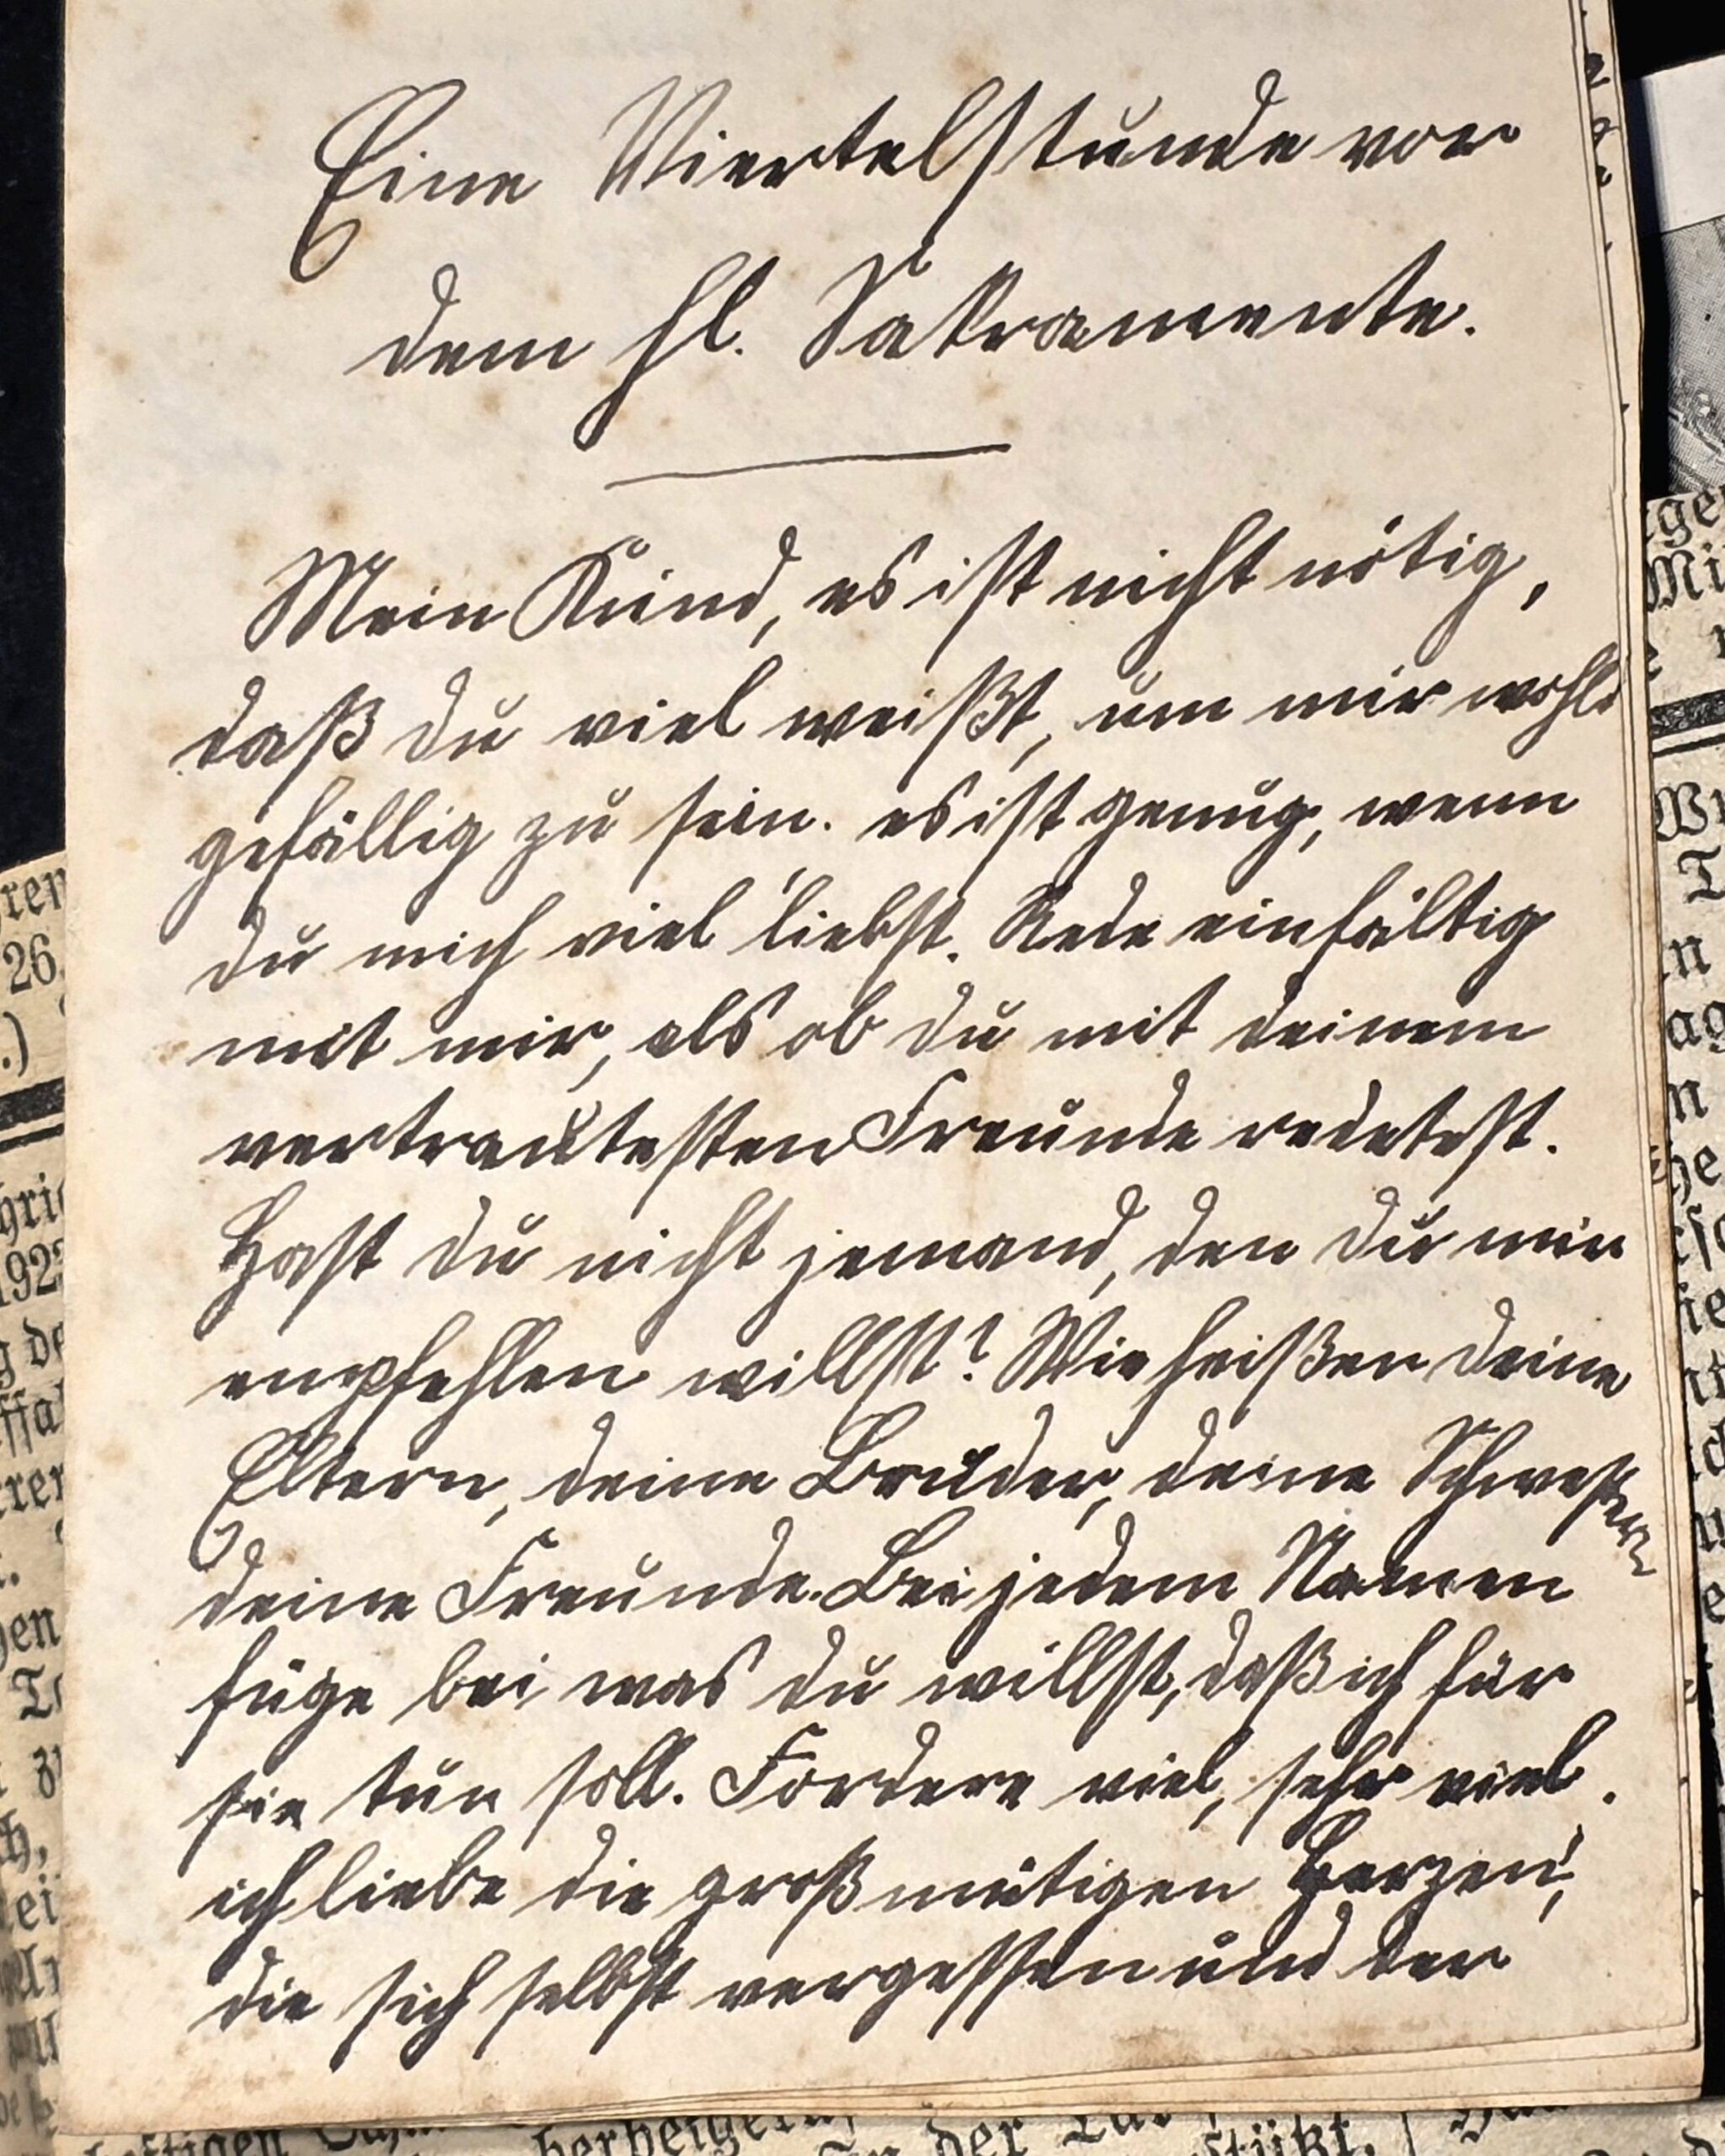 Eine Viertelstunde vor
dem hl. Sakramente.
Mein Kind, es ist nicht nötig,
daß du viel weißt, um mir wohl-
gefällig zu sein. es ist genug, wenn
du mich viel liebst. Rede einfältig
mit mir, als ob du mit deinem
vertrautesten Freunde redetest.
Hast du nicht jemand, den du mir
empfehlen willst? Wie heißen deine
Eltern, deine Brüder, deine Schwestern
deine Freunde. Bei jedem Namen
füge bei was du willst, daß ich für
sie tun soll. Fordere viel, sehr viel.
ich liebe die großmütigen Herzen,
die sich selbst vergessen und der
26
192
der